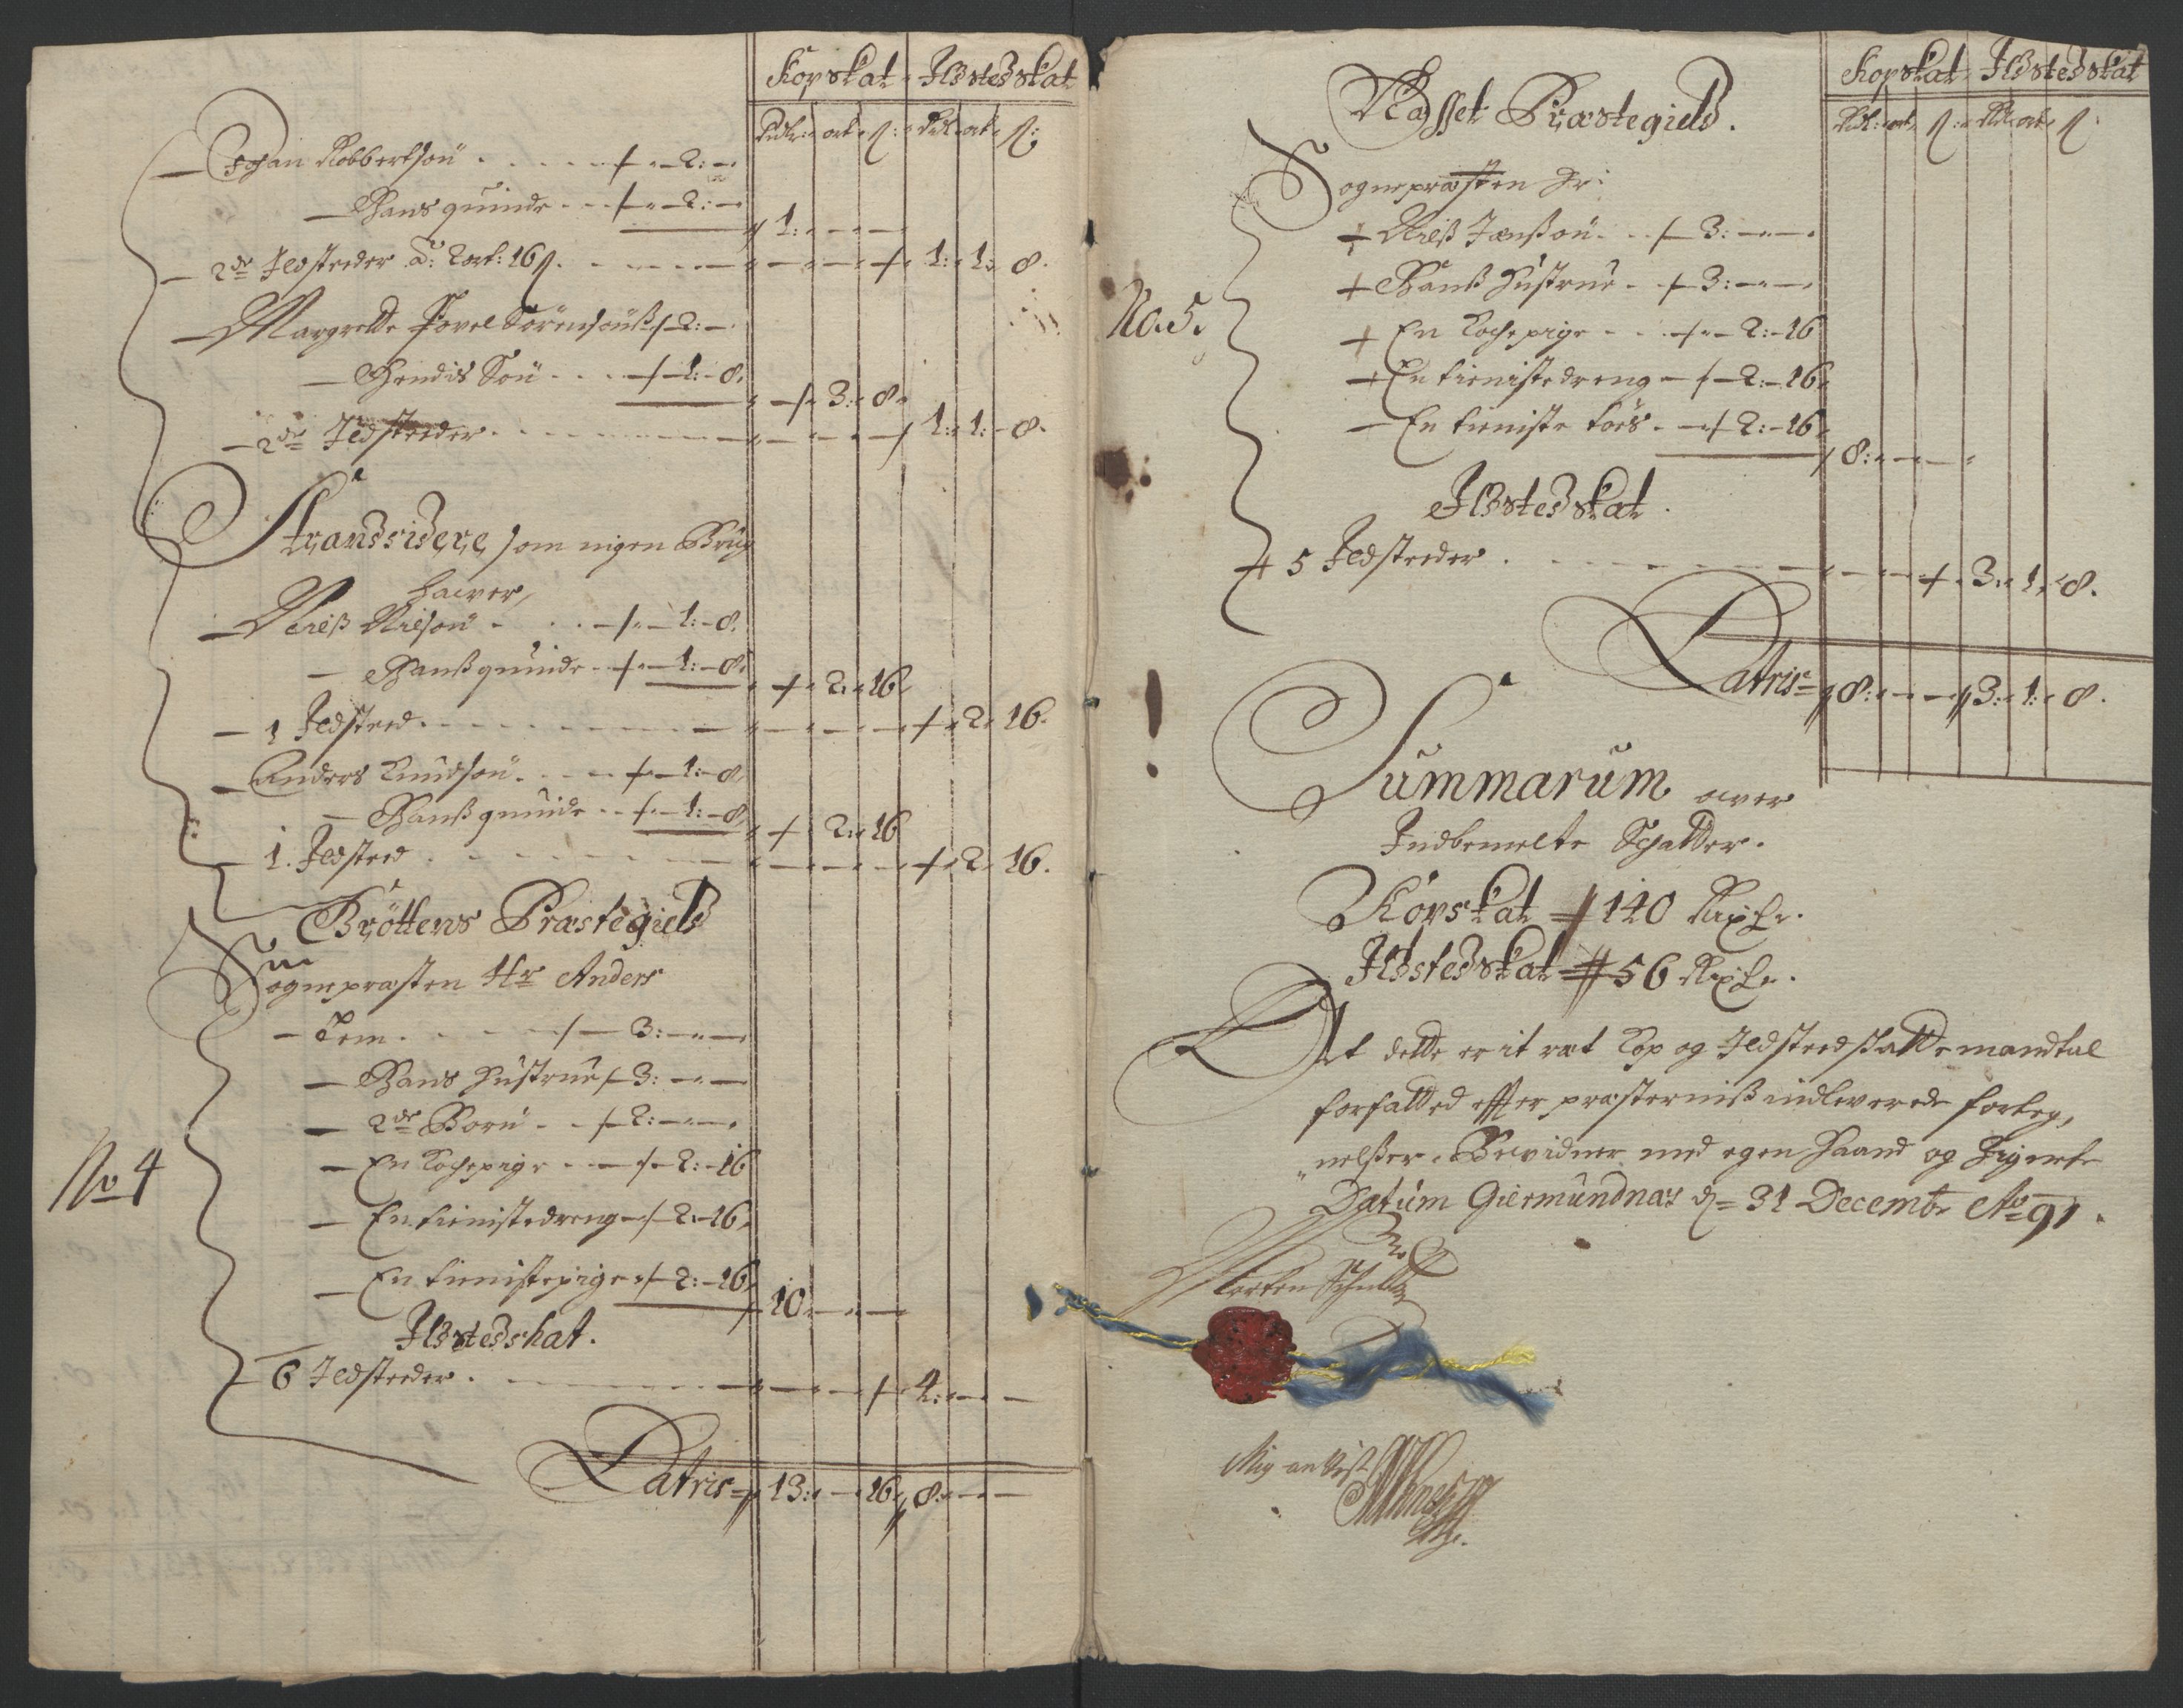 Kopskat Ildstedskat
Rdlr: ort ß: Rdl ort ß:
Johan Robbertsøn 2:
Hans quinde 2:
1:
2de Ildsteder à: 2 ort: 16 ß. 1: 1: 8.
Margrette Povel Sörensöns 2:
Hendis Søn 1: 8.
3: 8.
2de Ildsteder 1: 1: 8.
Strandsidere som ingen Brug
haver,
Nielß Nilsøn 1: 8.
Hanß quinde 1: 8.
2: 16.
1 Ildsted 2: 16.
Anders Knudsøn 1: 8.
Hanß quinde 1: 8.
2: 16
1. Ildsted 2: 16.
Bröttens Præstegield
Sognepræsten Hr Anders
Tem 3:
Hans Hustrue 3:
2de Børn 2:
No 4
En Kochepige 2: 16
En tienistedreng 2: 16.
En tienistepige 2: 16.
10:
Ildstedskat.
6 Ildsteder. 4:
Latris 13: 16. 8:
Kopskat Ildstedskat
Rdl: ort ß: Rdl ort ß:
Næsset Præstegield.
Sognepræsten Hr:
Nielß Jenßøn 3:
Hanß Hustrue 3:
No. 5.
En Kochepige 2: 16
En tienistedreng 2: 16.
En tieniste tøes 2: 16.
8:
Ildstedskat.
5 Ildsteder 3: 1: 8.
Latris 8: 3: 1: 8.
Summarum over
Indbemelte Schatter.
Kopskat 140 Rixdr.
Ildstedskat 56 Rixdr.
At dette er it ret Kop og Ildstedskatte mandtal
forfatted efter præsterniß indleverede forteg,
nelßer, Bevidner med egen Haand og Signete
Datum Giermundnæs d= 31 Decembr Ao 91.
Morten Schultz